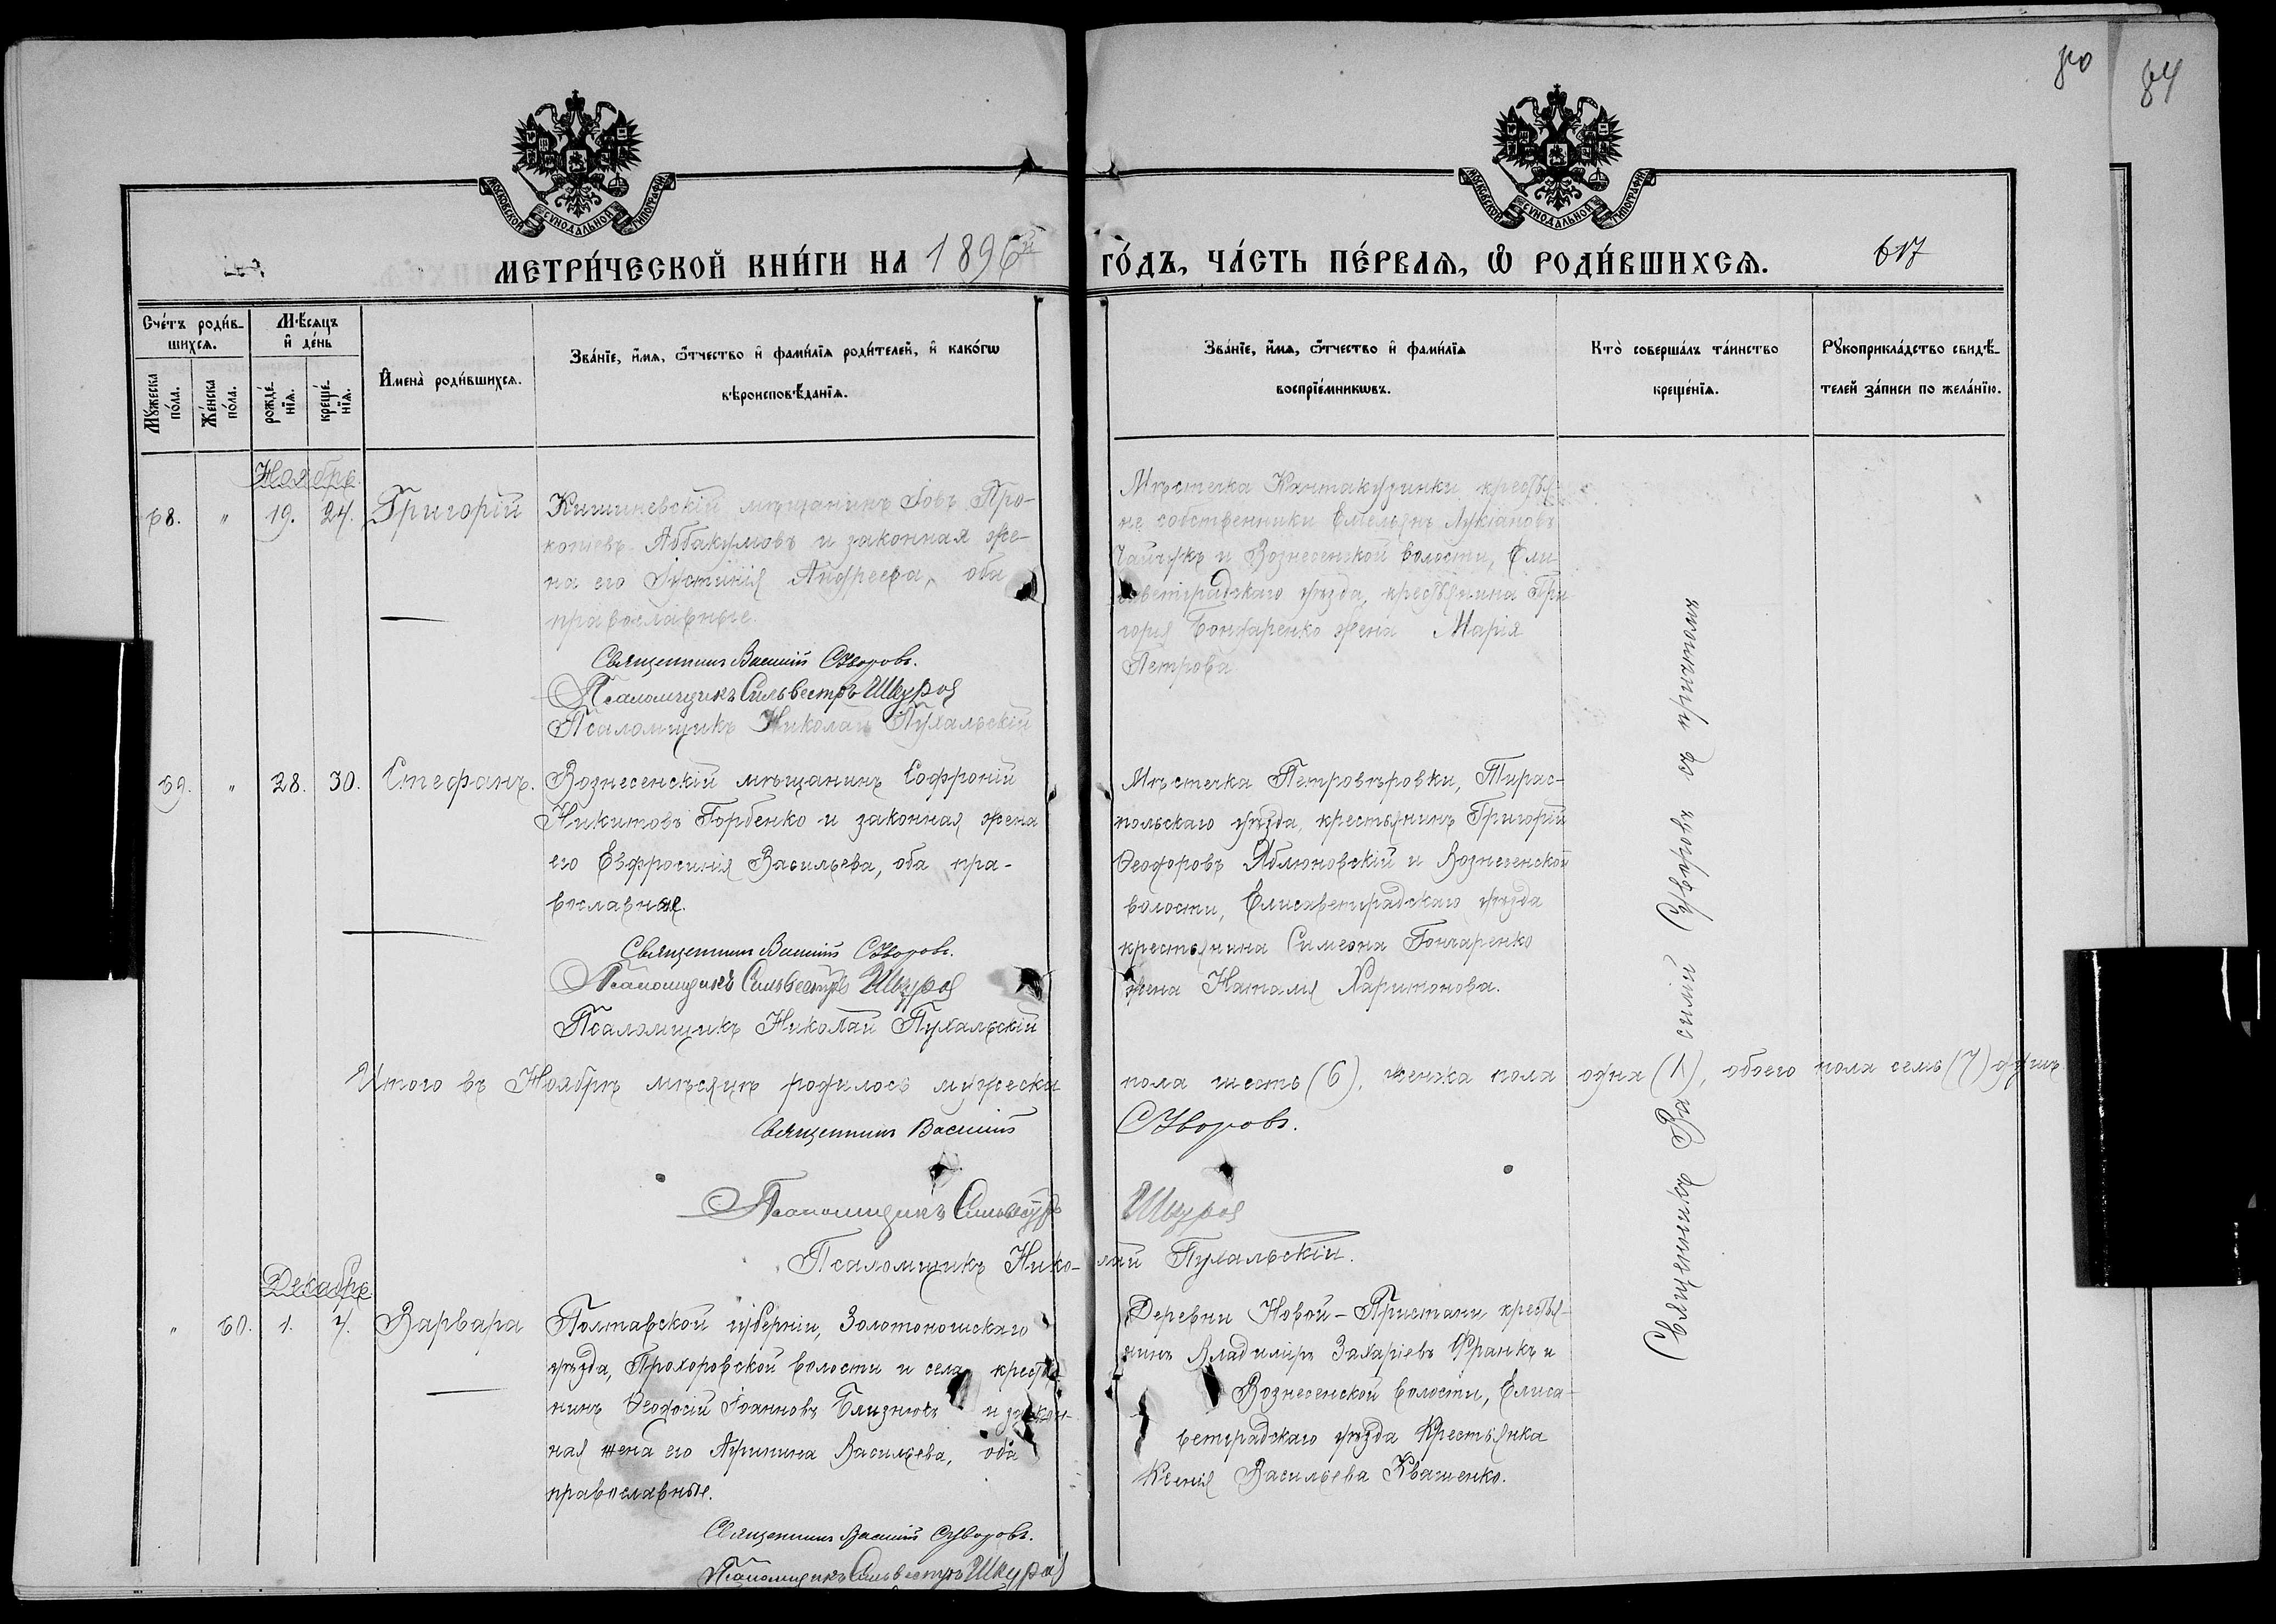 84
МОСКОВСКОЙ СѴНОДАЛЬНОЙ ТИПОГРАФІИ
МОСКОВСКОЙ СѴНОДАЛЬНОЙ ТИПОГРАФІИ
МЕТРИ́ЧЕСКОЙ КНИ́ГИ НА 1896й ГО́ДЪ, ЧА́СТЬ ПЕ́РВАѦ, Ѡ РОДИ́ВШИХСѦ.
617
Сче́тъ роди́в-
шихсѧ.
Мꙋ́жеска по́ла.
Же́нска по́ла.
Мѣ́сѧцъ
и҆ де́нь
рожде́-
нїѧ.
креще́-
нїѧ.
И҆мена̀ роди́вшихсѧ.
Зва́нїе, и҆́мѧ, ѻ҆́тчество и҆ фами́лїѧ роди́телей, и҆ како́гѡ
вѣроисповѣ́данїѧ.
Зва́нїе, и҆́мѧ, ѻ҆́тчество и҆ фами́лїѧ
воспрїе́мникѡвъ.
Кто̀ соверша́лъ та́инство
креще́нїѧ.
Рꙋкоприкла́дство свидѣ́-
телей за́писи по жела́нїю.
Ноябрь.
68. " 19. 24. Григорій
Кишиневскій мѣщанинъ Іовъ Про-
копіевъ Аббакумовъ и законная же-
на его Іустинія Андреева, оба
православные.
Священникъ Василій Суворовъ.
Псаломщикъ Сильвестръ Шкура
Псаломщикъ Николай Пухальскій
Мѣстечка Кантакузинки крестья-
не собственники Емельянъ Лукіановъ
Гайчукъ и Вознесенской волости, Ели-
саветградскаго уѣзда, крестьянина Гри-
горія Бондаренко жена Марія
Петрова
69. " 28. 30. Стефанъ.
Вознесенскій мѣщанинъ Софроній
Никитовъ Горбенко и законная жена
его Евфросинія Васильева, оба пра-
вославные.
Священникъ Василій Суворовъ.
Псаломщикъ Сильвестръ Шкура
Псаломщикъ Николай Пухальскій
Мѣстечка Петровѣровки, Тирас-
польскаго уѣзда, крестьянинъ Григорій
Ѳеодоровъ Яблоновскій и Вознесенской
волости, Елисаветградскаго уѣзда
крестьянина Симеона Гончаренко
жена Наталія Харитонова.
Священникъ Василій Суворовъ съ причтомъ
Итого въ Ноябрѣ мѣсяцѣ родилось мужеска пола шесть (6), женска пола одна (1), обоего пола семь (7) душъ
Священникъ Василій Суворовъ.
Псаломщикъ Сильвестръ Шкура
Псаломщикъ Николай Пухальскій.
Декабрь.
" 60. 1. 7. Варвара
Полтавской губерніи, Золотоношскаго
уѣзда, Прохоровской волости и села крестья-
нинъ Ѳеодосій Іоанновъ Близнюкъ и закон-
ная жена его Агрипина Васильева, оба
православные.
Священникъ Василій Суворовъ.
Псаломщикъ Сильвестръ Шкура
Деревни Новой-Пристани крестья-
нинъ Владиміръ Захаріевъ Франкъ и
Вознесенской волости, Елиса-
ветградскаго уѣзда Крестьянка
Ксенія Васильева Квашенко.